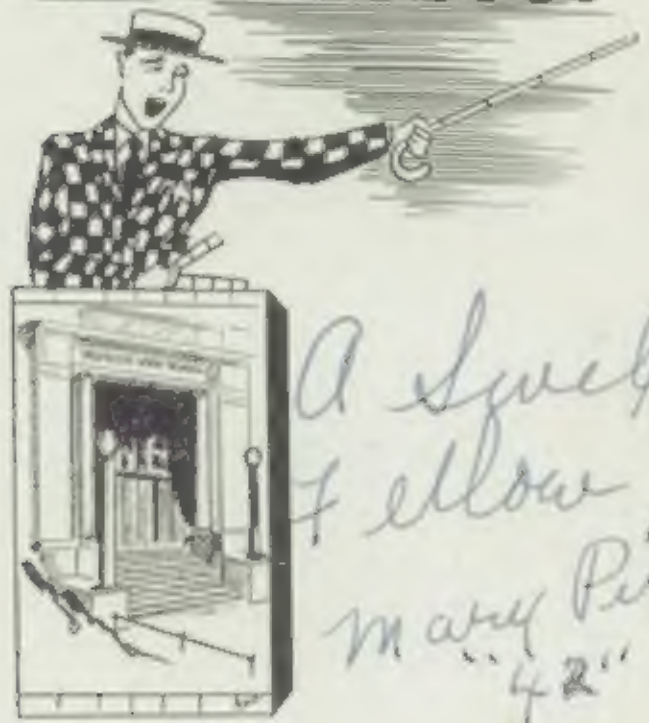 A Swel
Fellow
Mary Pi
"42"